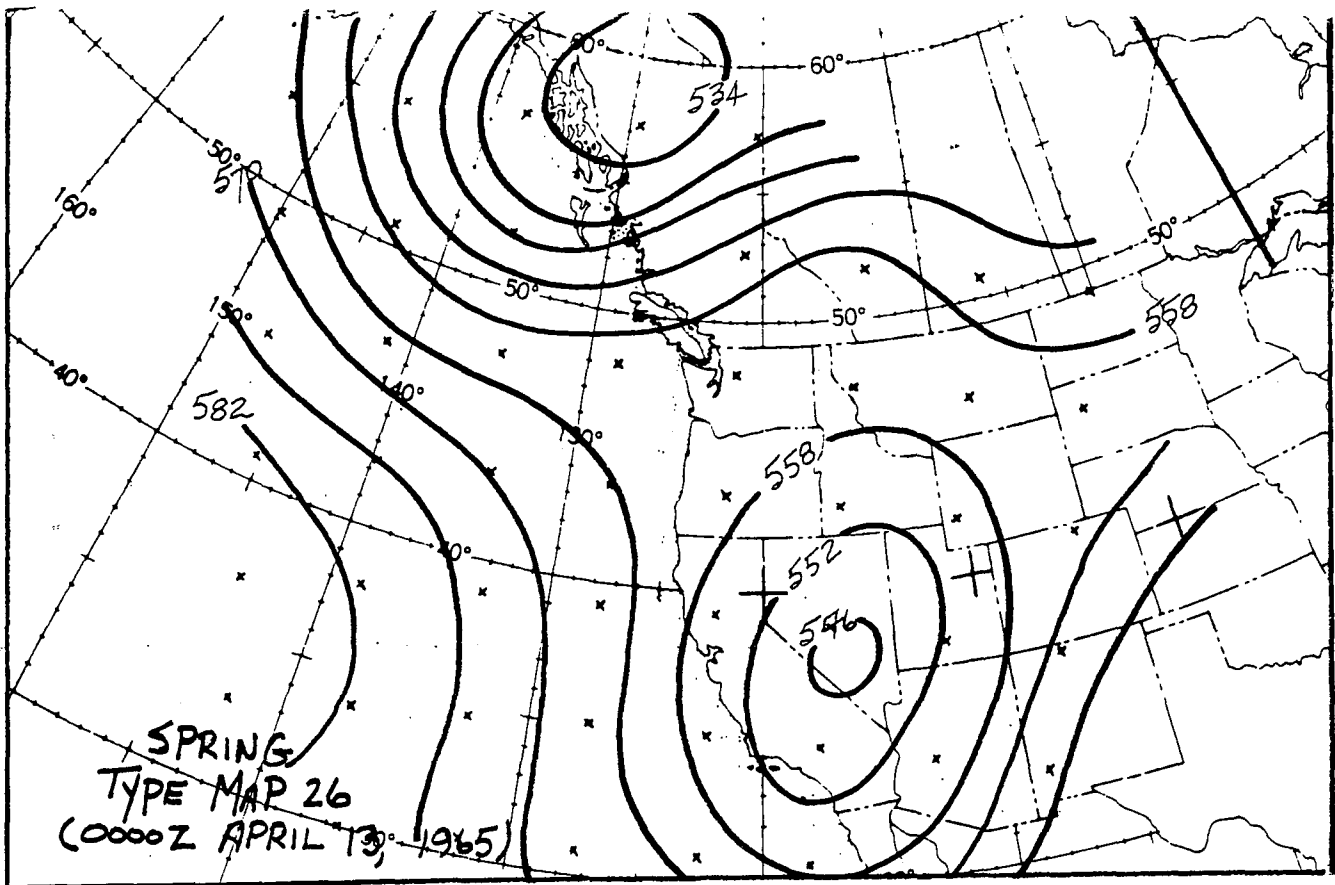 60°
60°
534
50°
570
160°
50°
50°
50°
558
150°
40°
140°
582
130°
558
40°
552
546
SPRING
TYPE MAP 26
(0000Z APRIL 13, 1965)
30°